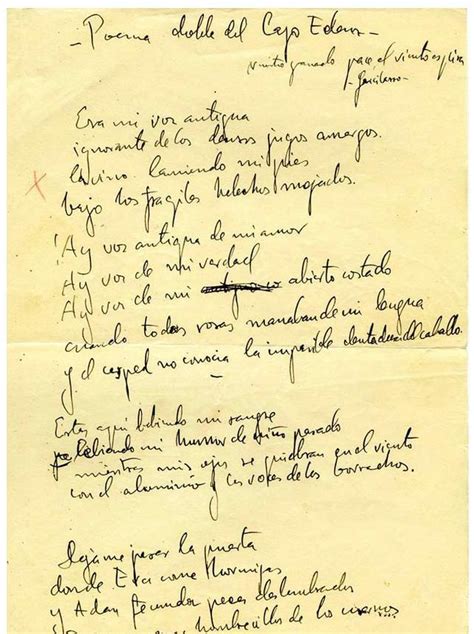 - Poema doble del Lago Edem -
nuestro ganado pace, el viento espira
- Garcilaso -
Era mi voz antigua
ignorante de los densos jugos amargos.
lamiendo mis pies
bajo los fragiles helechos mojados.
¡Ay voz antigua de mi amor
Ay voz de mi verdad
Ay voz de mi abierto costado
cuando todas rosas manaban de mi lengua
y el cesped no conocia la impasible dentadura del caballo.
Estas aqui bebiendo mi sangre
bebiendo mi humor de niño pesado
mientras mis ojos se quiebran en el viento
con el aluminio y las voces de los borrachos.
Dejame pasar la puerta
donde Eva come hormigas
y Adan fecunda peces deslumbrados
hombrecillos de los